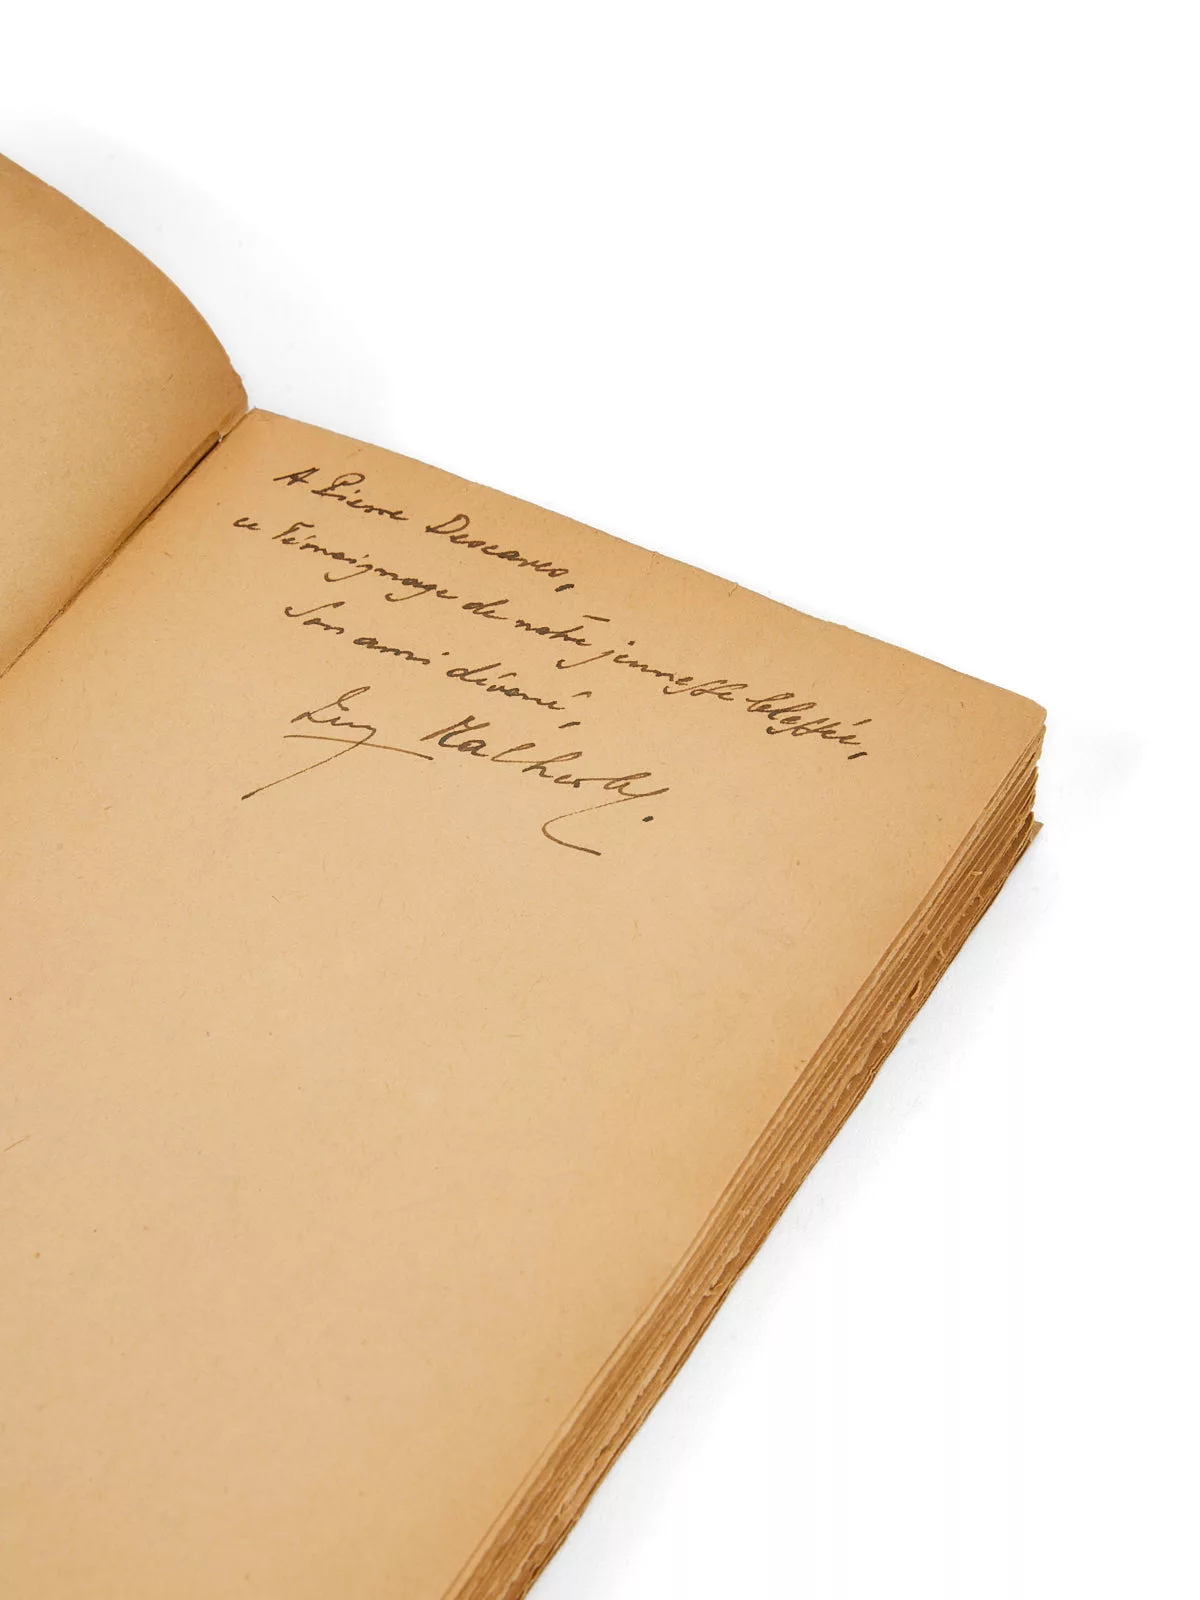 A Pierre Descaves,
ce témoignage de notre jeunesse blessée,
Son ami dévoué,
Malherbe.